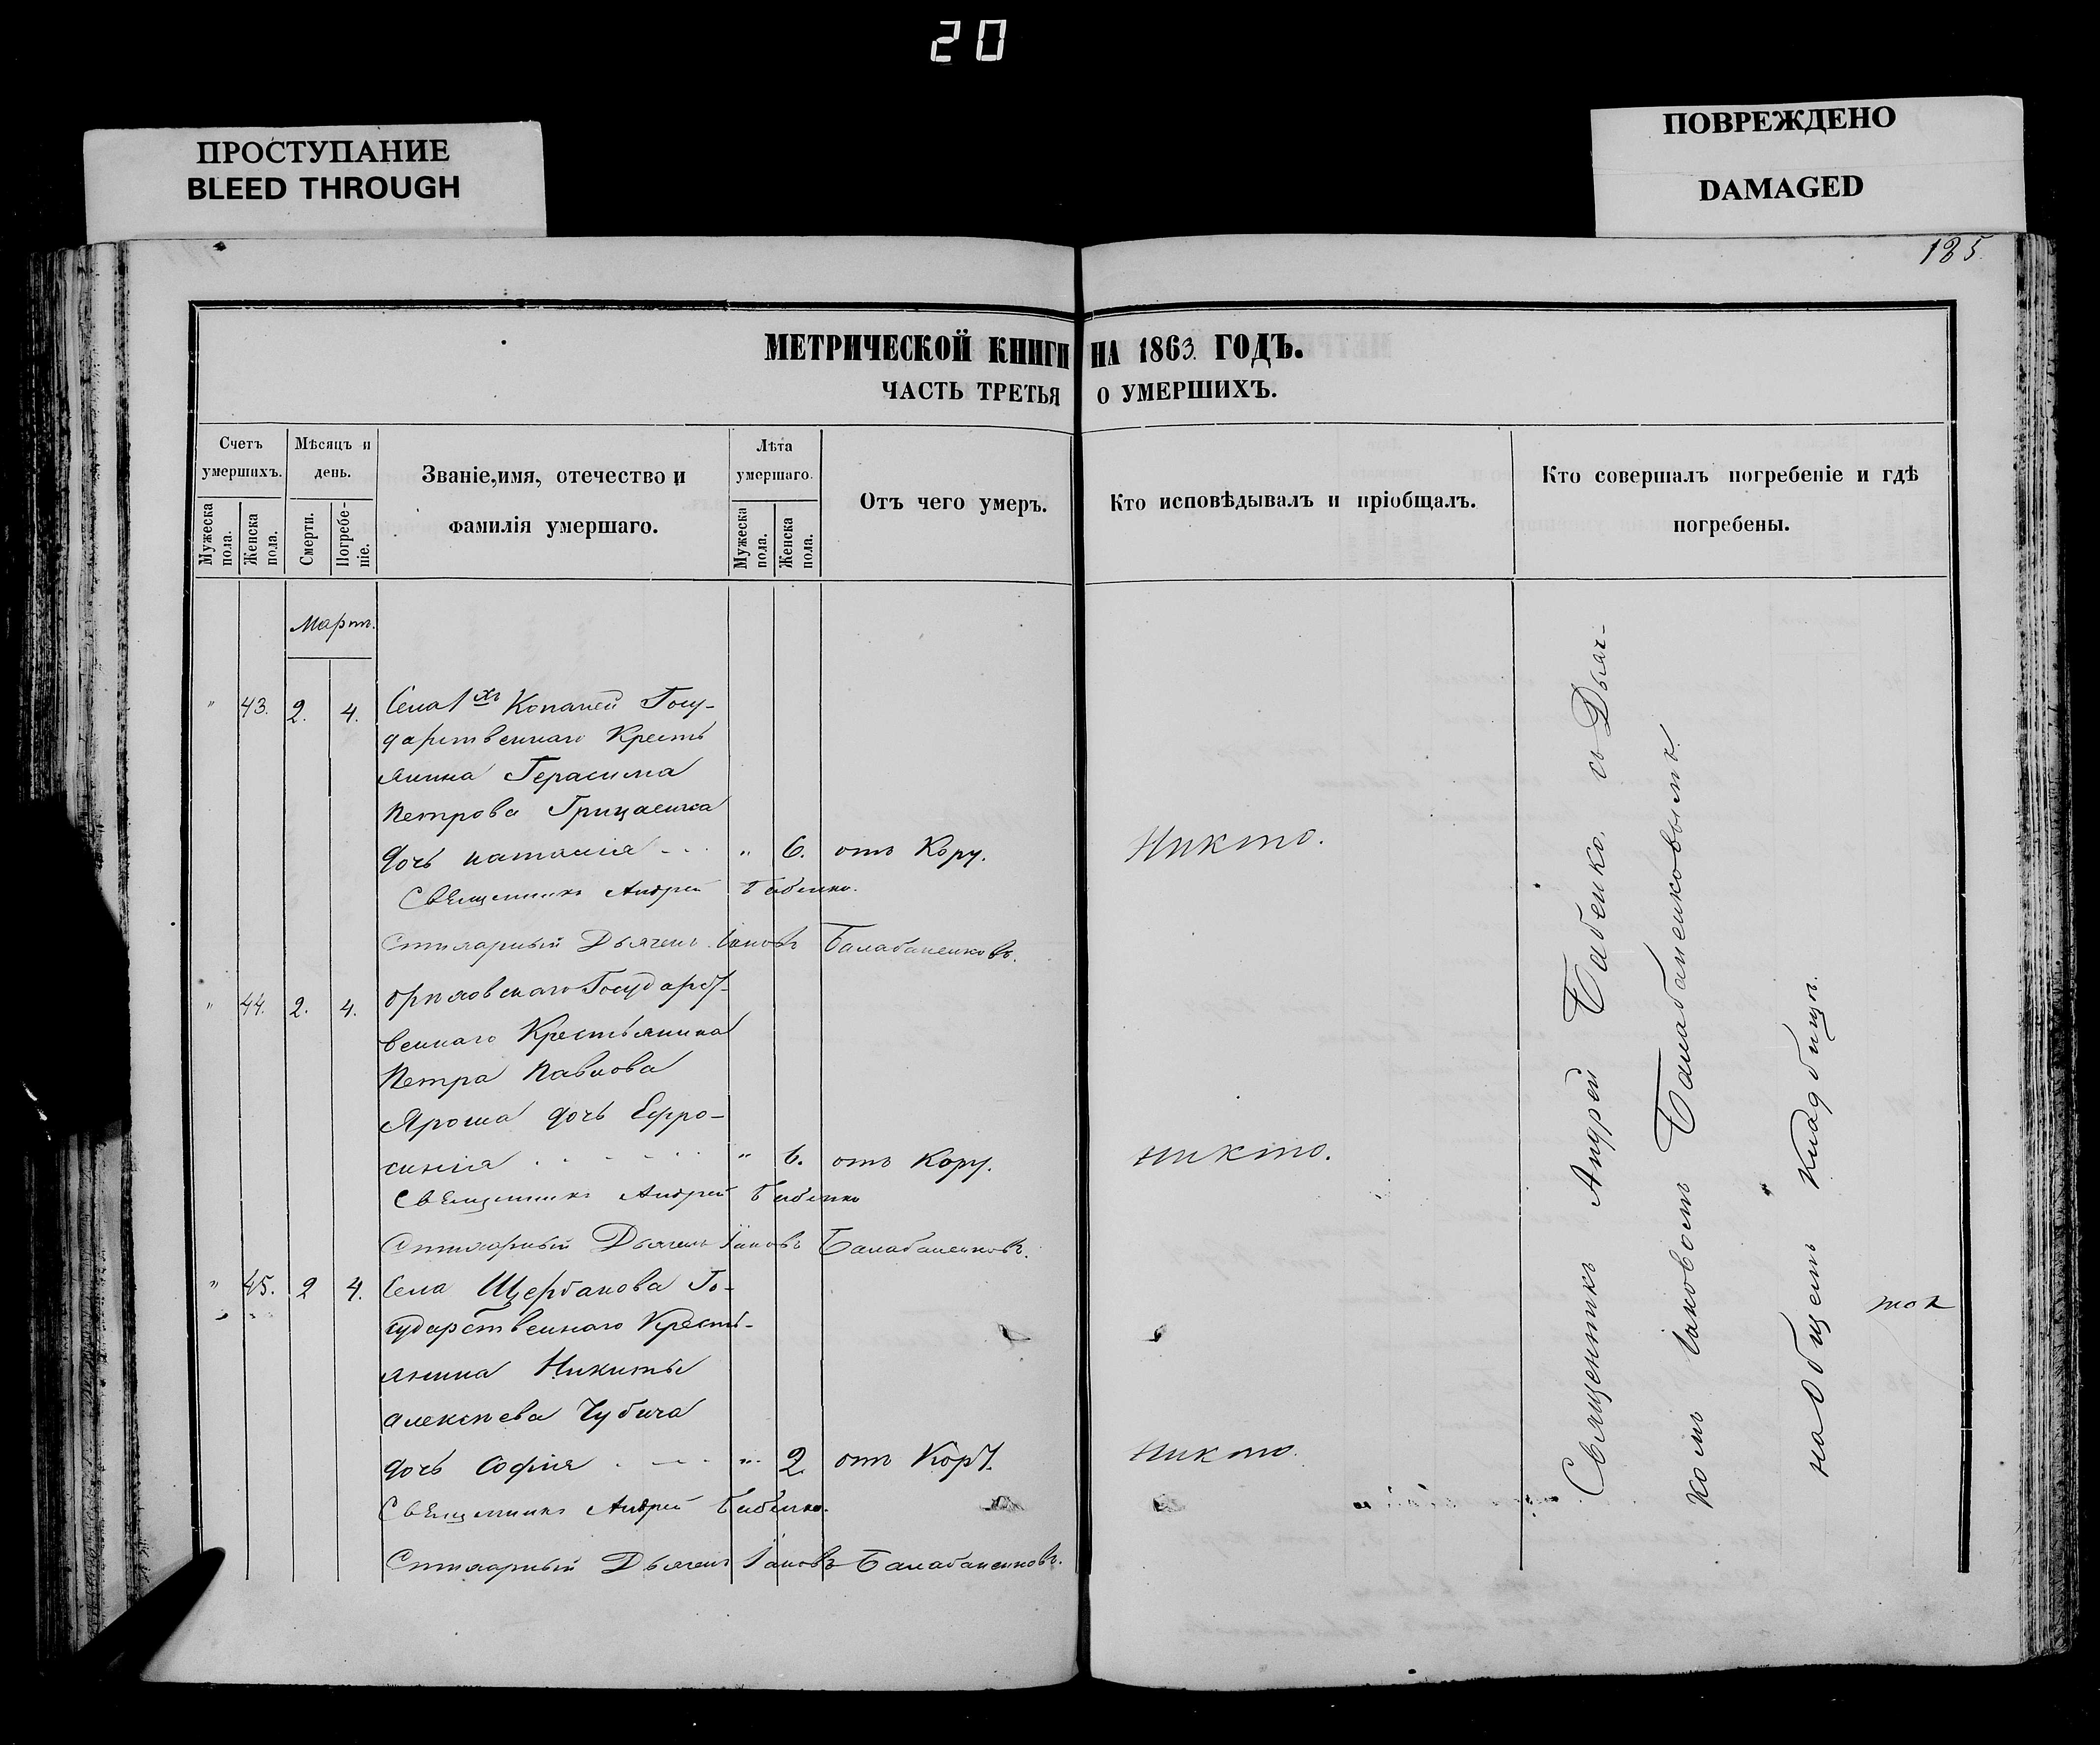 20
ПРОСТУПАНИЕ
BLEED THROUGH
ПОВРЕЖДЕНО
DAMAGED
185
МЕТРИЧЕСКОЙ КНИГИ НА 1863 ГОДЪ.
ЧАСТЬ ТРЕТЬЯ О УМЕРШИХЪ.
Счетъ умершихъ.
Мужеска пола.
Женска пола.
Мѣсяцъ и день.
Смерти.
Погребеніе.
Званіе, имя, отечество и фамилія умершаго.
Лѣта умершаго.
Мужеска пола.
Женска пола.
Отъ чего умеръ.
Кто исповѣдывалъ и пріобщалъ.
Кто совершалъ погребеніе и гдѣ погребены.
Мартъ.
" 43. 2. 4. Села 1хъ Копаней Госу-
дарственнаго Кресть
янина Герасима
Петрова Грицаенка
дочь Наталія - - " 6. отъ Кору. Никто.
Священникъ Андрей Бабенко.
Стихарный Дьячекъ Іаковъ Балабаненковъ.
" 44. 2. 4. Орловскаго Государст-
веннаго Крестьянина
Петра Павлова
Яроша дочь Ефро-
синія " 6. отъ Кору. Никто.
Священникъ Андрей Бабенко
Стихарный Дьячекъ Іаковъ Балабаненковъ.
" 45. 2 4. Села Щербакова Го-
сударственнаго Кресть-
янина Никиты
Алексѣева Чубича
дочь Софія " 2. отъ Кору. Никто.
Священникъ Андрей Бабенко.
Стихарный Дьячекъ Іаковъ Балабаненковъ.
Священникъ Андрей Бабенко, съ Дьяч-
комъ Іаковомъ Балабаненковымъ.
на общемъ кладбищѣ.